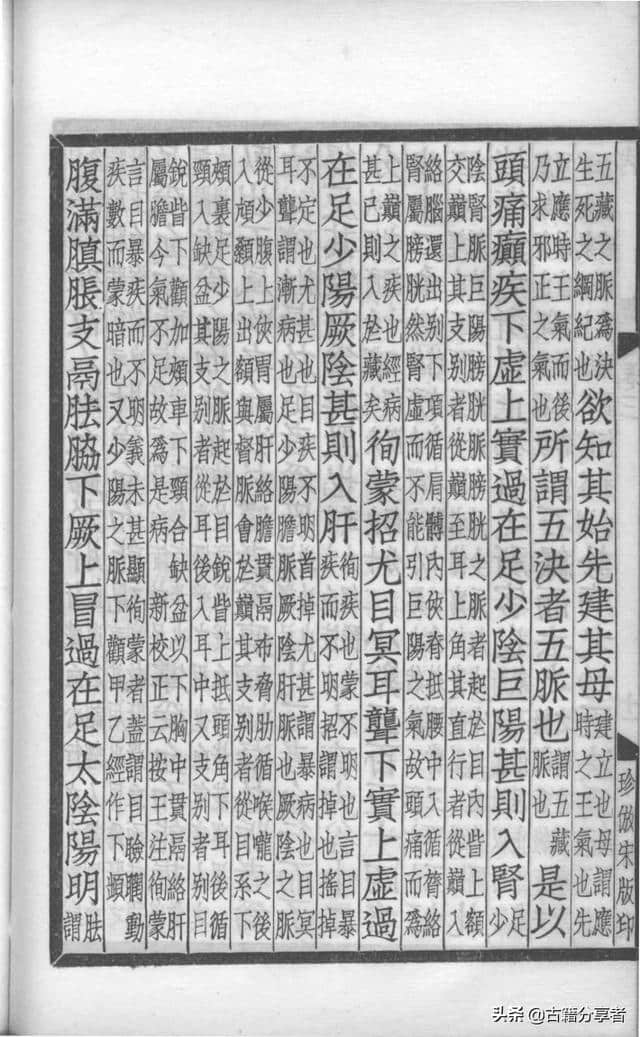 五藏之脈爲決
生死之綱紀也
欲知其始先建其母
建立也母謂應
時之王氣也先
立應時王氣而後
乃求邪正之氣也
所謂五決者五脈也
謂五藏
脈也
是以
頭痛癲疾下虛上實過在足少陰巨陽甚則入腎
足
少
陰腎脈巨陽膀胱脈膀胱之脈者起於目內眥上額
交巔上其支别者從巔至耳上角其直行者從巔入
絡腦還出别下項循肩髆內俠脊抵腰中入循膂絡
腎屬膀胱然腎虛而不能引巨陽之氣故頭痛而爲
上巔之疾也經病
甚已則入於藏矣
徇蒙招尤目冥耳聾下實上虛過
在足少陽厥陰甚則入肝
徇疾也蒙不明也言目暴
疾而不明招謂掉也搖掉
不定也尤甚也目疾不明首掉尤甚謂暴病也目冥
耳聾謂漸病也足少陽膽脈厥陰肝脈也厥陰之脈
從少腹上俠胃屬肝絡膽貫鬲布脅肋循喉嚨之後
入頏顙上出額與督脈會於巔其支别者從目系下
頰裏足少陽之脈起於目銳眥上抵頭角下耳後循
頸入缺盆其支别者從耳後入耳中又支别者别目
銳眥下顴加頰車下頸合缺盆以下胸中貫鬲絡肝
屬膽今氣不足故爲是病 新校正云按王注徇蒙
言目暴疾而不明義未甚顯徇蒙者蓋謂目瞼瞤動
疾數而蒙暗也又少陽之脈下顴甲乙經作下
腹滿䐜脹支鬲胠脇下厥上冒過在足太陰陽明
胠
謂
珍倣宋版印
头条 @古籍分享者